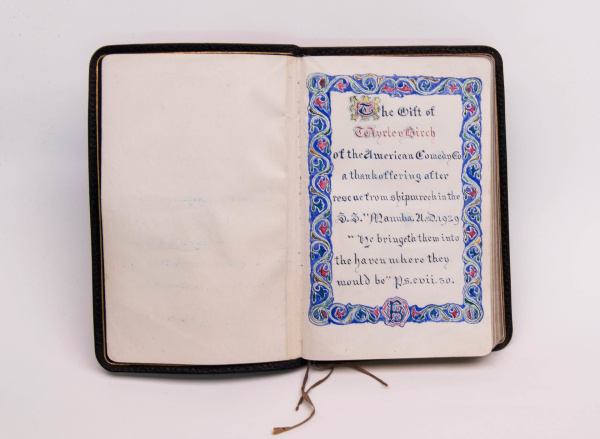 The Gift of
T. Wyrley Birch
of the American Comedy Co
a thankoffering after
rescue from shipwreck in the
S.S. "Manuka. A.D. 1929
"He bringeth them into
the haven where they
would be" Ps. cvii. 30.